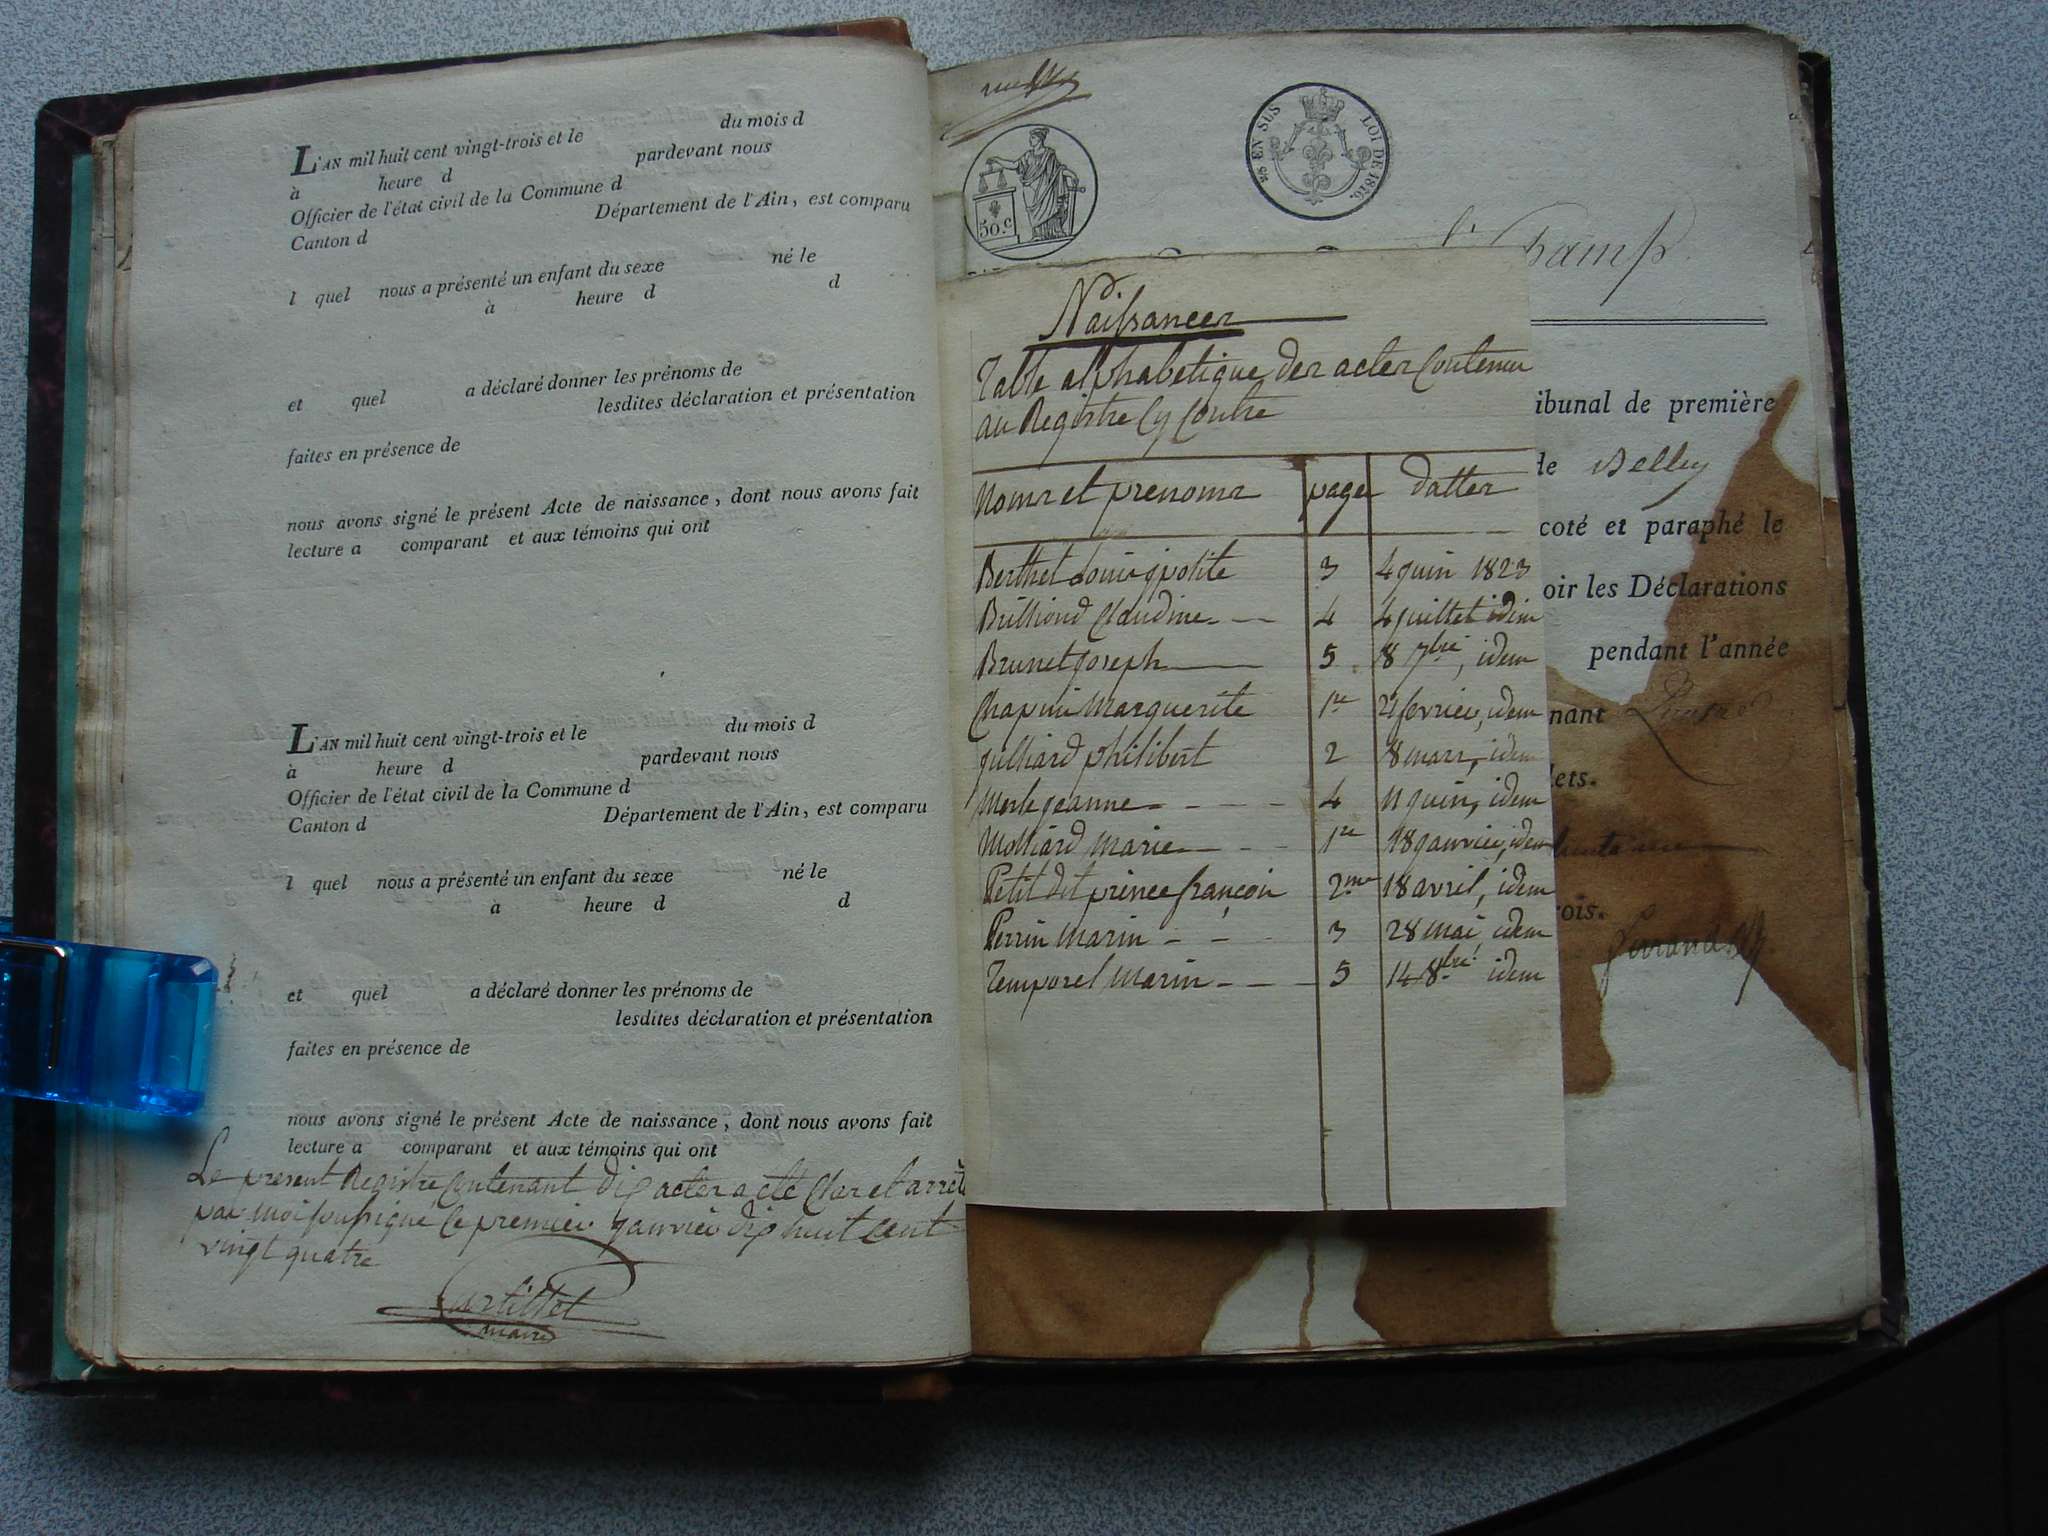 L'AN mil huit cent vingt-trois et le du mois d
à heure d pardevant nous
Officier de l'état civil de la Commune d
Canton d Département de l'Ain, est comparu
l quel nous a présenté un enfant du sexe né le
à heure d d
et quel a déclaré donner les prénoms de
lesdites déclaration et présentation
faites en présence de
nous avons signé le présent Acte de naissance, dont nous avons fait
lecture a comparant et aux témoins qui ont
L'AN mil huit cent vingt-trois et le du mois d
à heure d pardevant nous
Officier de l'état civil de la Commune d
Canton d Département de l'Ain, est comparu
l quel nous a présenté un enfant du sexe né le
a heure d d
et quel a déclaré donner les prénoms de
lesdites déclaration et présentation
faites en présence de
nous avons signé le présent Acte de naissance, dont nous avons fait
lecture a comparant et aux témoins qui ont
Le present Registre Contenant dix actes a eté Clos et arreté
par moi soussigné le premier janvier dix huit cent
vingt quatre
maire
50.c
EN SUS LOI DE 1816.
Champ
Naissances
Table alphabetique des actes Contenus
au Registre Cy Contre
Noms et prenoms page dattes
Berthet Louis ipolite 3 4 juin 1823
Brilliond Claudine 4 4 juillet idem
Brunet joseph 5 8 7bre, idem
Chapuis Marguerite 1re fevrier, idem
julliard philibert 2 8 mars, idem
Merle jeanne 4 11 juin, idem
Molliard Marie 1re 18 janvier, idem
Petit dit prince françois 2me 18 avril, idem
Perrin Marin 3 28 mai idem
Temporel Marin 5 14 8bre idem
ibunal de première
de Belley
coté et paraphé le
oir les Déclarations
pendant l'année
nant
lets.
rois.